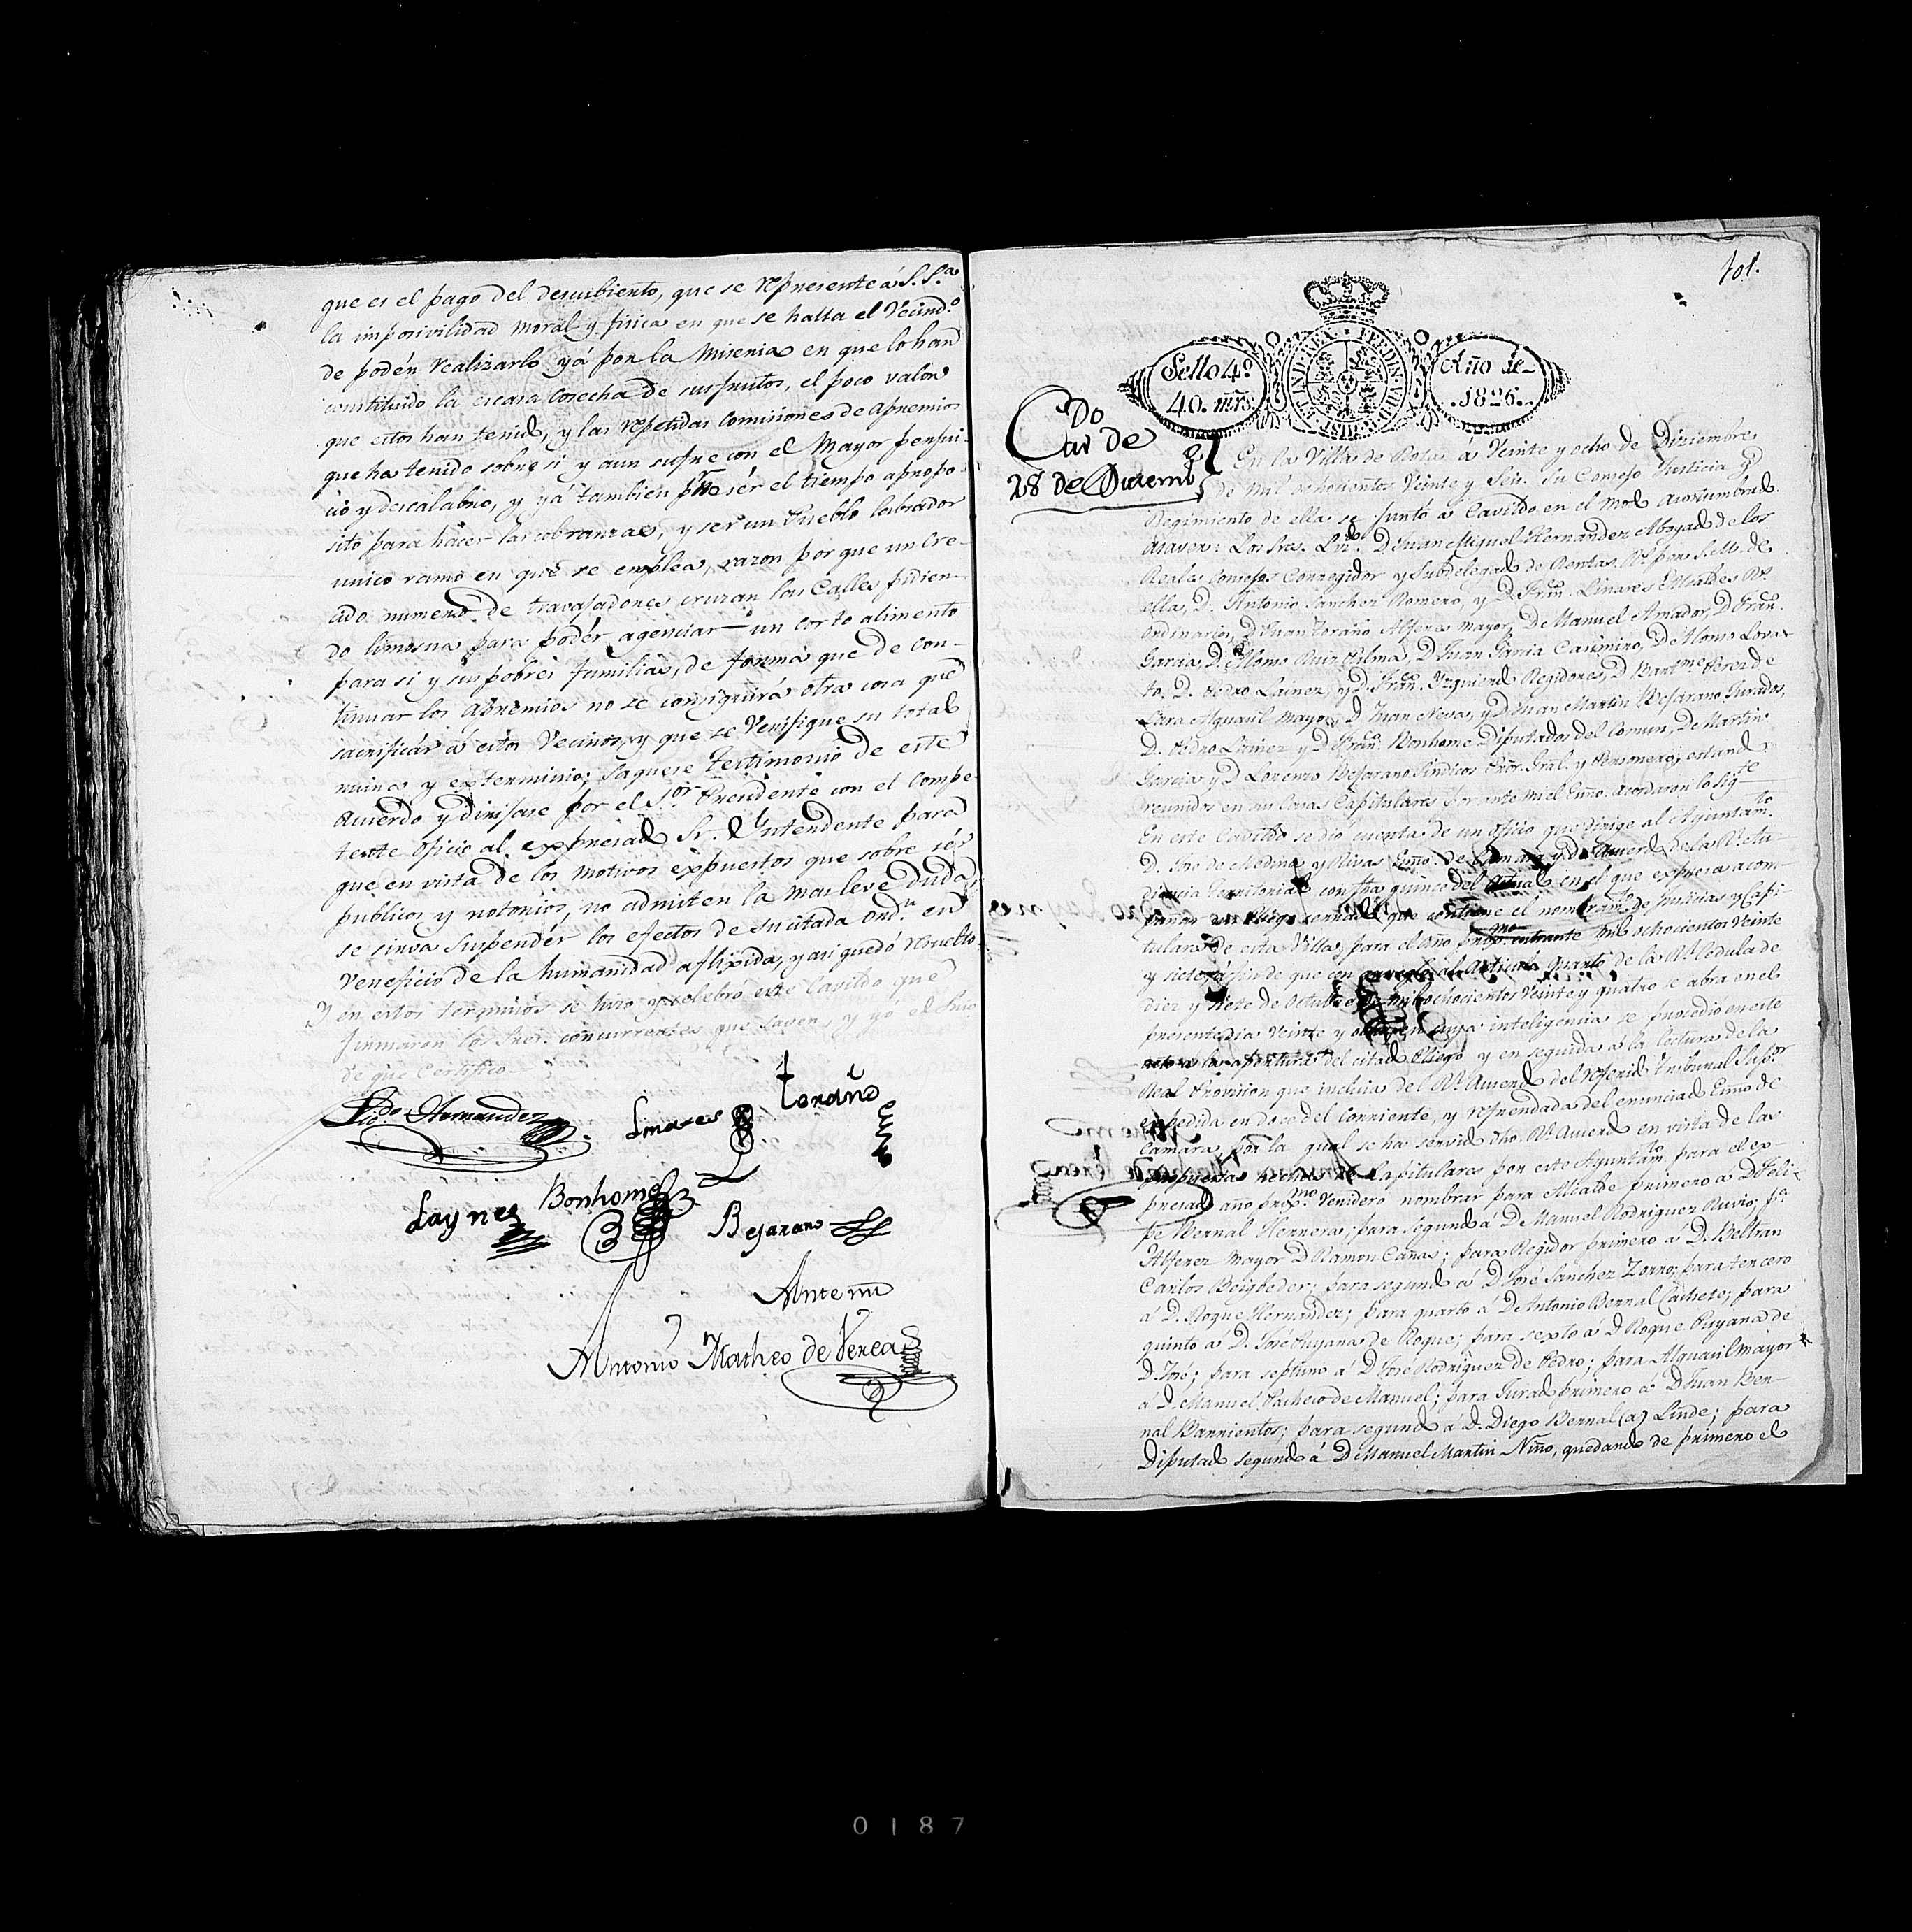 que es el pago del descubiento, que se represente á S. S.ª
la imposivilidad moral y fisica en que se halla el Vecind.º
de podér realizarlo yá por la Miseria en que lo han
constituido la escasa Cosecha de sus frutos, el poco valor
que estos han tenido, y las repetidas Comisiones de apremios
que ha tenido sobre si y aun sufre con el Mayor perjui-
cio y descalabro, y yá tambien pr. no sér el tiempo apropo-
sito para hacer las cobranzas, y ser un Pueblo labrador
unico ramo en que se emplea, razon por que un cre-
cido numero de travajadores cruzan las Calles pidien-
do limosna para podér agenciar un corto alimento
para si y sus pobres familias, de forma que de con-
tinuar los Apremios no se conseguirá otra cosa que
sacrificár á estos Vecinos, y que se Verifique su total
ruina y exterminio; saquese testimonio de este
Acuerdo y dirijase por el S.or Presidente con el compe-
tente oficio al expresado Sr. Yntendente para
que en vista de los motivos expuestos que sobre sér
publicos y notorios, no admiten la mas leve duda,
se sirva suspendér los efectos de su citada Ord.n en
Veneficio de la humanidad aflixida, y asi quedó resuelto.
Y en estos terminos se hizo y celebró este Cavildo que
firmaron los Sres. concurrentes que saven, y yó el Ssno
de que Certifico
Lic.do Hernandez
Linares
Toraño
Laynes
Bonhome
Bejarano
Ante mi
Antonio Matheo de Verea
101.
Sello 4.º
40. mrs.
Año de
1826.
Cav.do de
28 de Diziem.e
En la Villa de Rota á Veinte y ocho de Diziembre
de mil ochocientos Veinte y Seis. Su Consejo Justicia y
Regimiento de ella se juntó á Cavildo en el modo acostumbrado
asaver: Los Sres. Liz.do D. Juan Miguel Hernandez Abogado de los
Reales Consejos Corregidor y Subdelegado de Rentas R.s por S. M. de
ella, D. Antonio Sanchez Romero, y D. Fran.co Linares Alcaldes R.s
Ordinarios, D. Juan Toraño Alferes mayor, D. Manuel Amador, D. Fran.co
Garcia, D. Alonso Ruiz Gilma, D. Juan Garcia Casimiro, D. Alonso Lova-
to, D. Pedro Lainez, y D. Fran.co Yzquierdo Regidores, D. Bart.me Perez de
Lara Alguacil mayor, D. Juan Nevas, y D. Juan Martin Bejarano Jurados,
D. Pedro Lainez y D. Fran.co Bonhome Diputados del Comun, D. Martin
Garcia y D. Lorenzo Bejarano Sindicos Pror. Gral. y Personero; estando
reunidos en sus Casas Capitulares por ante mi el Essno. acordaron lo sig.te
En este Cavildo se dió cuenta de un oficio que dirige al Ayuntam.to
D. José de Medina y Rivas Essno. de Camara y de Acuerdo de la R.l Au-
diencia territorial con fha quince del actual en el que expresa acom-
pañar un Pliego cerrado que contiene el nombram.to de Justicias y Capi-
tulares de esta Villa, para el año prox.mo entrante mil ochocientos Veinte
y siete; á fin de que con arreglo al Articulo quarto de la R.l Cedula de
diez y siete de Octubre de mil ochocientos Veinte y quatro se abra en el
presente dia Veinte y ocho; en cuya inteligencia se procedió en este
acto a la apertura del citado Pliego y en seguida a la lectura de la
Real Provision que incluia del R.l Acuerdo del referido tribunal Sup.or
expedida en doce del corriente, y refrendada del enunciado Essno de
Camara, por la qual se ha servido dho. R.l Acuerdo en vista de la
propuesta hecha de Capitulares por este Ayuntam.to para el ex-
presado año prox.mo Venidero nombrar para Alcalde primero á D. Feli-
pe Bernal Herrera; para segundo á D. Manuel Rodriguez Ruvio; p.a
Alferez mayor D. Ramon Cañas; para Regidor primero a D. Beltran
Carlos Beigbeder; para segundo á D. José Sanchez Zorro; para tercero
á D. Roque Hernandez; para quarto á D. Antonio Bernal Cachete; para
quinto á D. José Puyana de Roque; para sexto á D. Roque Puyana de
D. José; para septimo á D. José Rodriguez de Pedro; para Alguacil mayor
á D. Manuel Pacheco de Manuel; para Jurado primero á D. Juan Ber-
nal Barrientos; para segundo á D. Diego Bernal (a) Linde; para
Diputado segundo á D. Manuel Martin Niño, quedando de primero el
0187